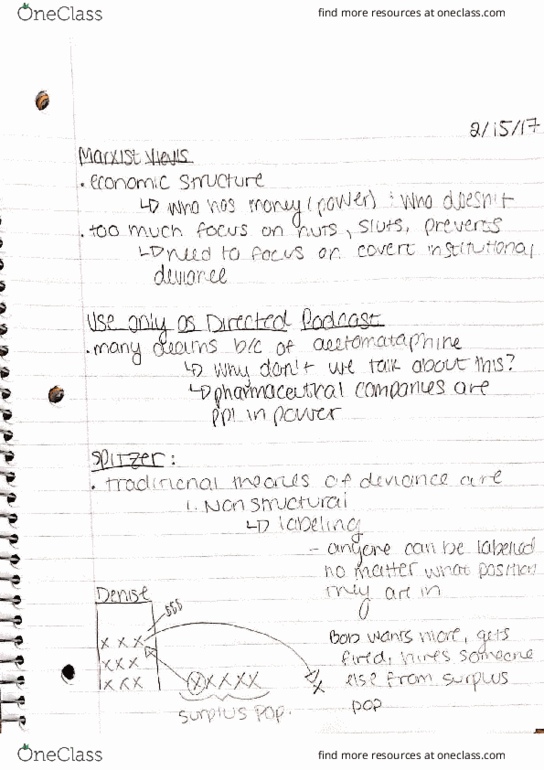 OneClass
find more resources at oneclass.com
2/15/17
Marxist Views
• economic structure
↳ who has money (power) : who doesn't
• too much focus on nuts, sluts, preverts
↳ need to focus on covert institutional
deviance
Use only as Directed Podcast
• many deaths b/c of acetomataphine
↳ Why don't we talk about this?
↳ pharmaceutral companies are
ppl in power
Spitzer:
• traditional theories of deviance are
1. Non structural
↳ labeling
- anyone can be labeled
no matter what position
they are in
Denise
$$$
x x x
x x x
x x x
x x x x x
x
surplus pop.
Bob wants more, gets
fired, hires someone
else from surplus
pop
OneClass
find more resources at oneclass.com